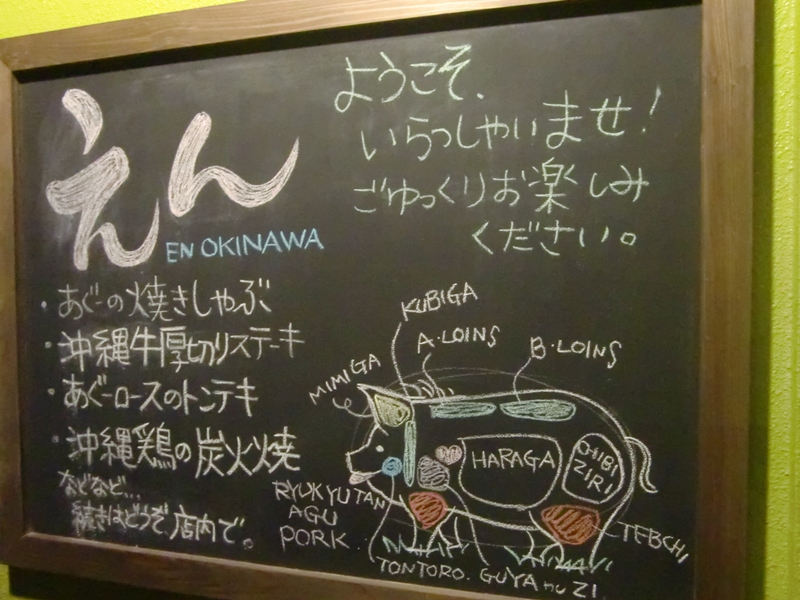 えん
EN OKINAWA
ようこそ、
いらっしゃいませ!
ごゆっくりお楽しみ
ください。
・あぐーの焼きしゃぶ
・沖縄牛厚切りステーキ
・あぐーロースのトンテキ
・沖縄鶏の炭火焼
などなど...
続きはどうぞ店内で。
KUBIGA
A・LOINS
B・LOINS
MIMIGA
HARAGA
CHIBI
ZIRI
RYUKYU TAN
AGU
PORK
TEBCHI
TONTORO. GUYA nu ZI.